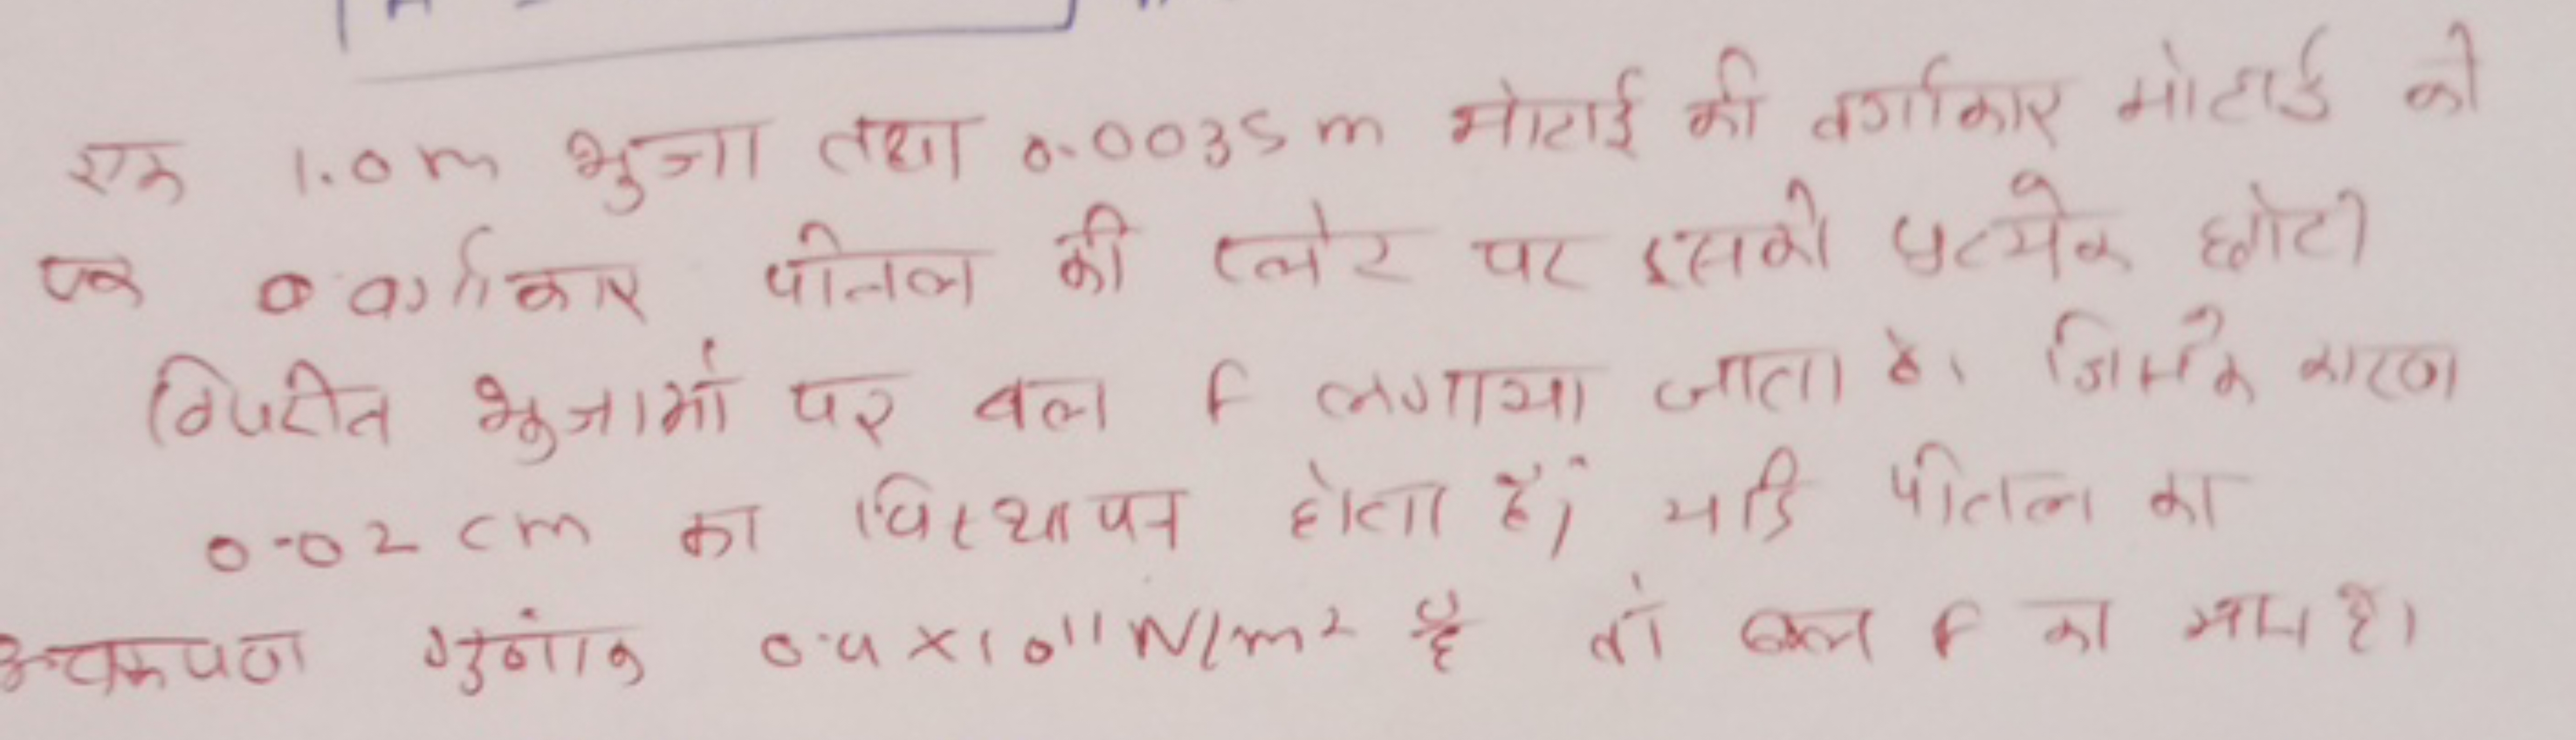 एक 1.0 m भुजा तथा 0.0035 m मोटाई की वर्गाकार मोटाई की
एक वर्गाकार पीतल की प्लेट पर इसकी प्रत्येक छोटी
विपरीत भुजाओं पर बल F लगाया जाता है। जिसके कारण
0.02 cm का विस्थापन होता है, यदि पीतल का
अपरूपण गुणांक 0.4 × 10¹¹ N/m² है तो बल F का मान है।